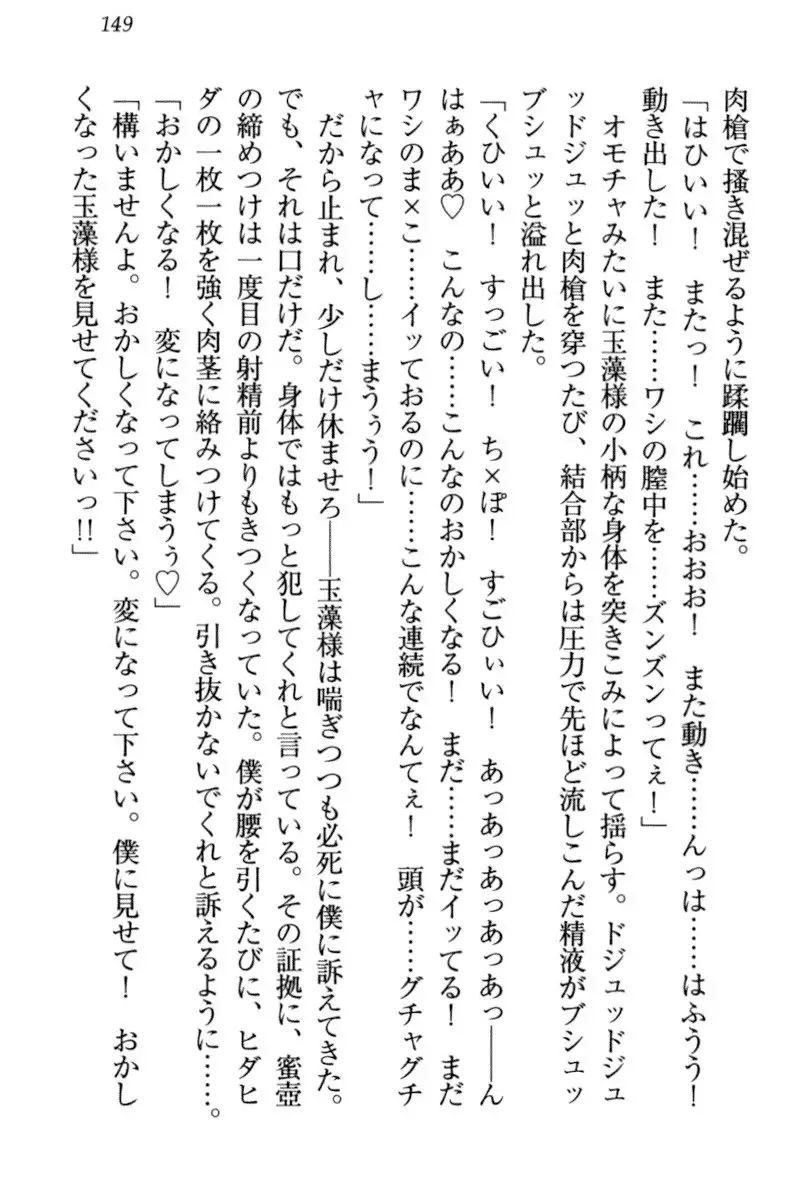 149
肉槍で掻き混ぜるように蹂躙し始めた。
「はひいい！　またっ！　これ……おおお！　また動き……んっは……はふうう！
動き出した！　また……ワシの膣中を……ズンズンってぇ！」
　オモチャみたいに玉藻様の小柄な身体を突きこみによって揺らす。ドジュッドジュ
ッドジュッと肉槍を穿つたび、結合部からは圧力で先ほど流しこんだ精液がブシュッ
ブシュッと溢れ出した。
「くひいい！　すっごい！　ち×ぽ！　すごひぃい！　あっあっあっあっあっ――ん
はぁああ♡　こんなの……こんなのおかしくなる！　まだ……まだイッてる！　まだ
ワシのま×こ……イッておるのに……こんな連続でなんてぇ！　頭が……グチャグチ
ャになって……し……まうぅう！」
　だから止まれ、少しだけ休ませろ――玉藻様は喘ぎつつも必死に僕に訴えてきた。
でも、それは口だけだ。身体ではもっと犯してくれと言っている。その証拠に、蜜壺
の締めつけは一度目の射精前よりもきつくなっていた。僕が腰を引くたびに、ヒダヒ
ダの一枚一枚を強く肉茎に絡みつけてくる。引き抜かないでくれと訴えるように……。
「おかしくなる！　変になってしまうぅ♡」
「構いませんよ。おかしくなって下さい。変になって下さい。僕に見せて！　おかし
くなった玉藻様を見せてくださいっ!!」